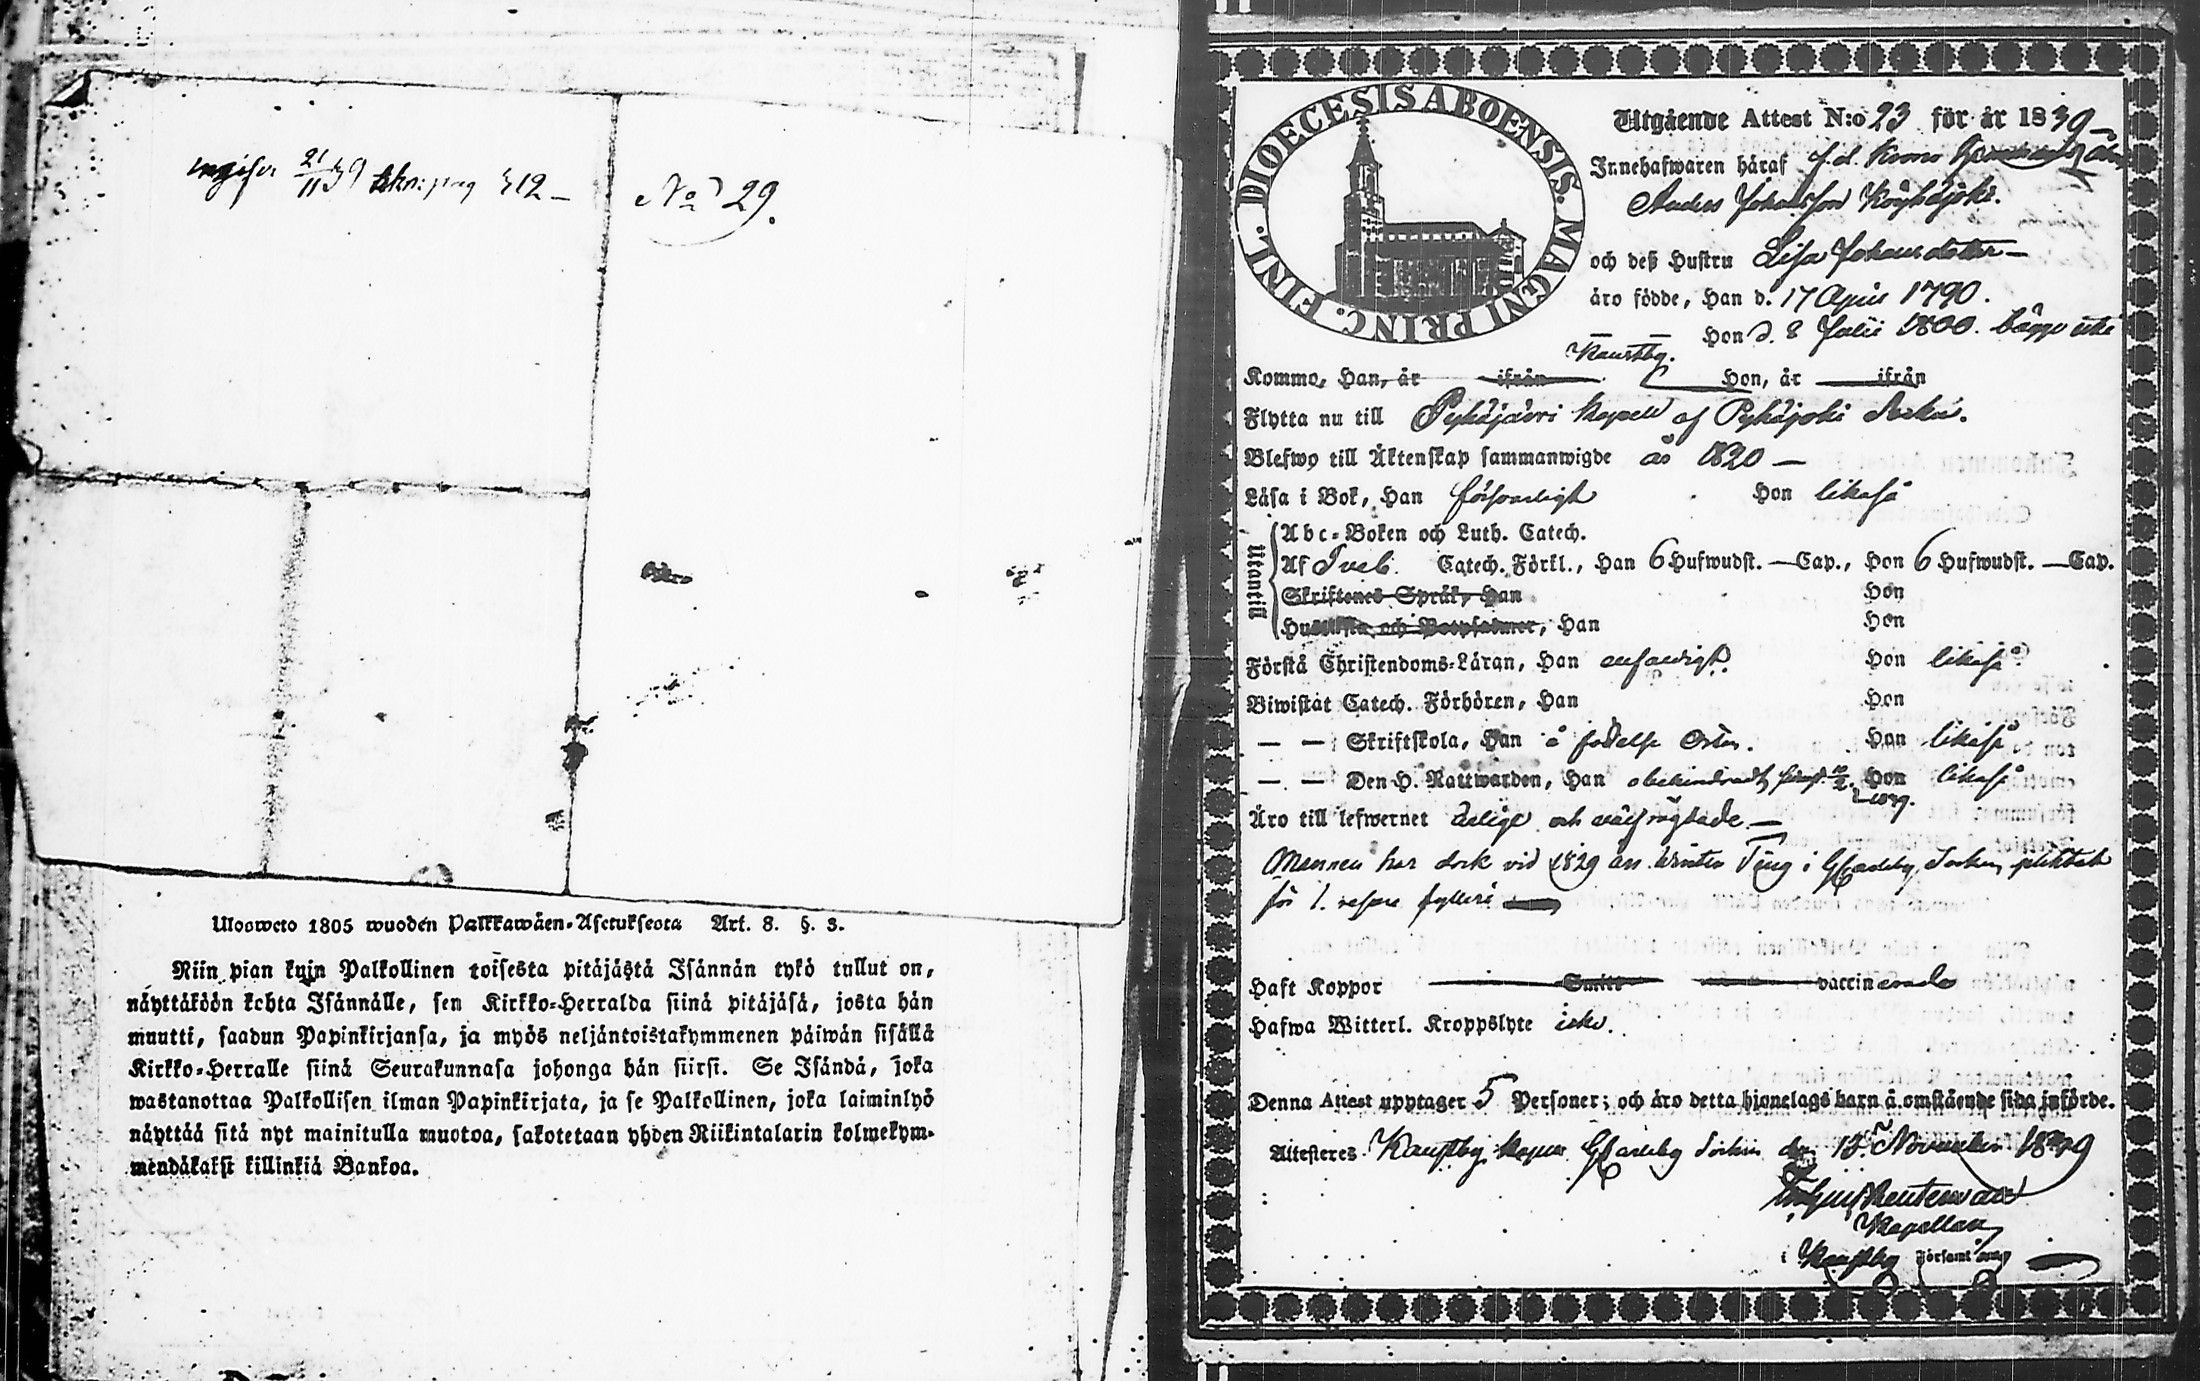 21/11 39 pag 512 –
No 29.
Ulosweto 1805 wuoden Palkkawäen-Asetuksesta Art. 8. §. 3.
Niin pian kuin Palkollinen toisesta pitäjästä Isännän tykö tullut on,
näyttäköön kohta Isännälle, sen Kirkko-Herralda siinä pitäjäsä, josta hän
muutti, saadun Papinkirjansa, ja myös neljäntoistakymmenen päiwän sisällä
Kirkko-Herralle siinä Seurakunnasa johonga hän siirsi. Se Isändä, joka
wastanottaa Palkollisen ilman Papinkirjata, ja se Palkollinen, joka laiminlyö
näyttää sitä nyt mainitulla muotoa, sakotetaan yhden Riikintalarin kolmekym-
mendäkaksi killinkiä Bankoa.
DIOECESIS ABOENSIS. MAGNI PRINC. FINL.
Utgående Attest N:o 23 för år 1839
Innehafwaren häraf f.d. Krono
Anders Johansson Köyhäjoki.
och deß Hustru Lisa Johansdotter –
äro födde, Han d. 17 April 1790.
Hon d. 8 Julii 1800. bägge uti
Kaustby.
Komma, Han, år ifrån Hon, år ifrån
Flytta nu till Pyhäjärvi Kapell af Pyhäjoki Socken.
Blefwo till Äktenskap sammanwigde år 1820 –
Läsa i Bok, Han försvarligt Hon likaså
Utantill
Abc-Boken och Luth. Catech.
Af Sveb. Catech. Förkl., Han 6 Hufwudst. — Cap., Hon 6 Hufwudst. — Cap.
Skriftenes Språk, Han Hon
Hustafla och Botpsalmer, Han Hon
Förstå Christendoms-Läran, Han enfaldigt. Hon likaså
Biwistat Catech. Förhören, Han Hon
— — Skriftskola, Han å födelse Orten. Hon likaså
— — Den H. Nattwarden, Han obehindradt, Hon likaså
Äro till lefwernet ärlige och välfrägdade. —
Mannen har dock vid 1829 års Winter Ting i GCarleby Socken pliktat
för 1. resan fylleri
Haft Koppor Smitt vaccinerade
Hafwa Witterl. Kroppslyte icke.
Denna Attest upptager 5 Personer; och äro detta hjonelags barn å omstående sida införde.
Attesteres Kaustby Kapell GCarleby Socken den 13 November 1839
Kapellan
i Kaustby Församling